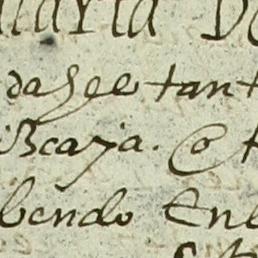 taria D
da See tant
Bcaya. @ t
bendo Enl